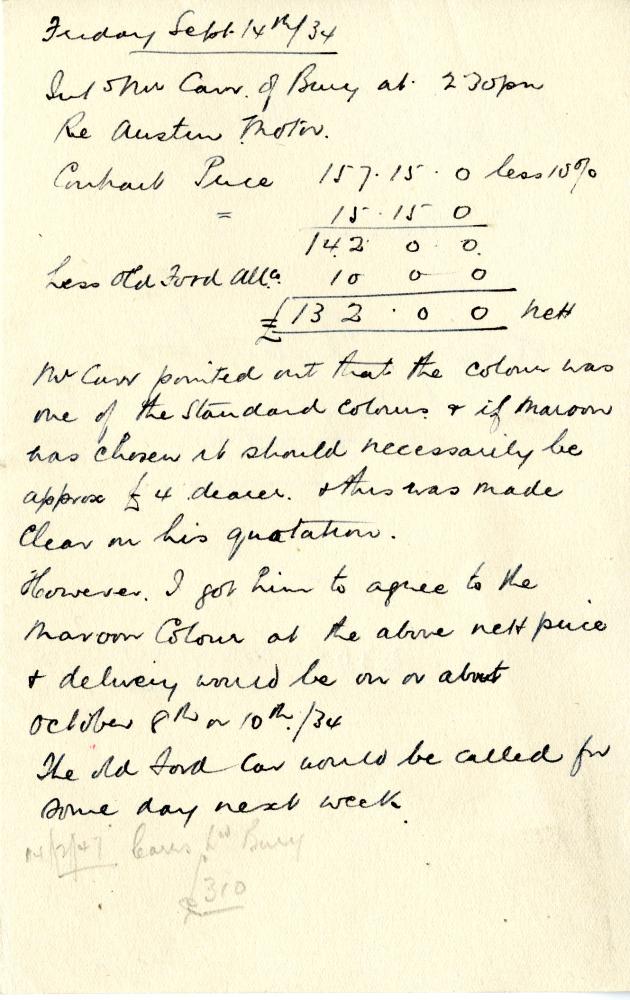 Friday Sept. 14th/34
Int Mr Carr. of Bury at 2-30pm
Re Austin Motor.
Contract Price 157. 15. 0 less 10%
= 15. 15 0
142 0 0.
Less Old Ford Allce 10 0 0
£132 . 0 0 nett
Mr Carr pointed out that the colour was
one of the Standard colours & if Maroon
was chosen it should necessarily be
approx £4 dearer. & this was made
Clear on his quotation.
However. I got him to agree to the
Maroon Colour at the above nett price
& delivery would be on or about
October 8th or 10th/34
The old Ford Car would be called for
some day next week.
14/2/47 Carrs Ltd Bury
£310